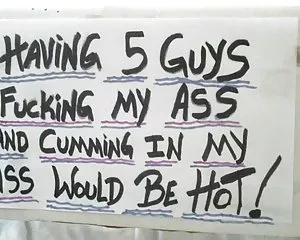 HAVING 5 GUYS
FUCKING MY ASS
AND CUMMING IN MY
ASS WOULD BE HOT!